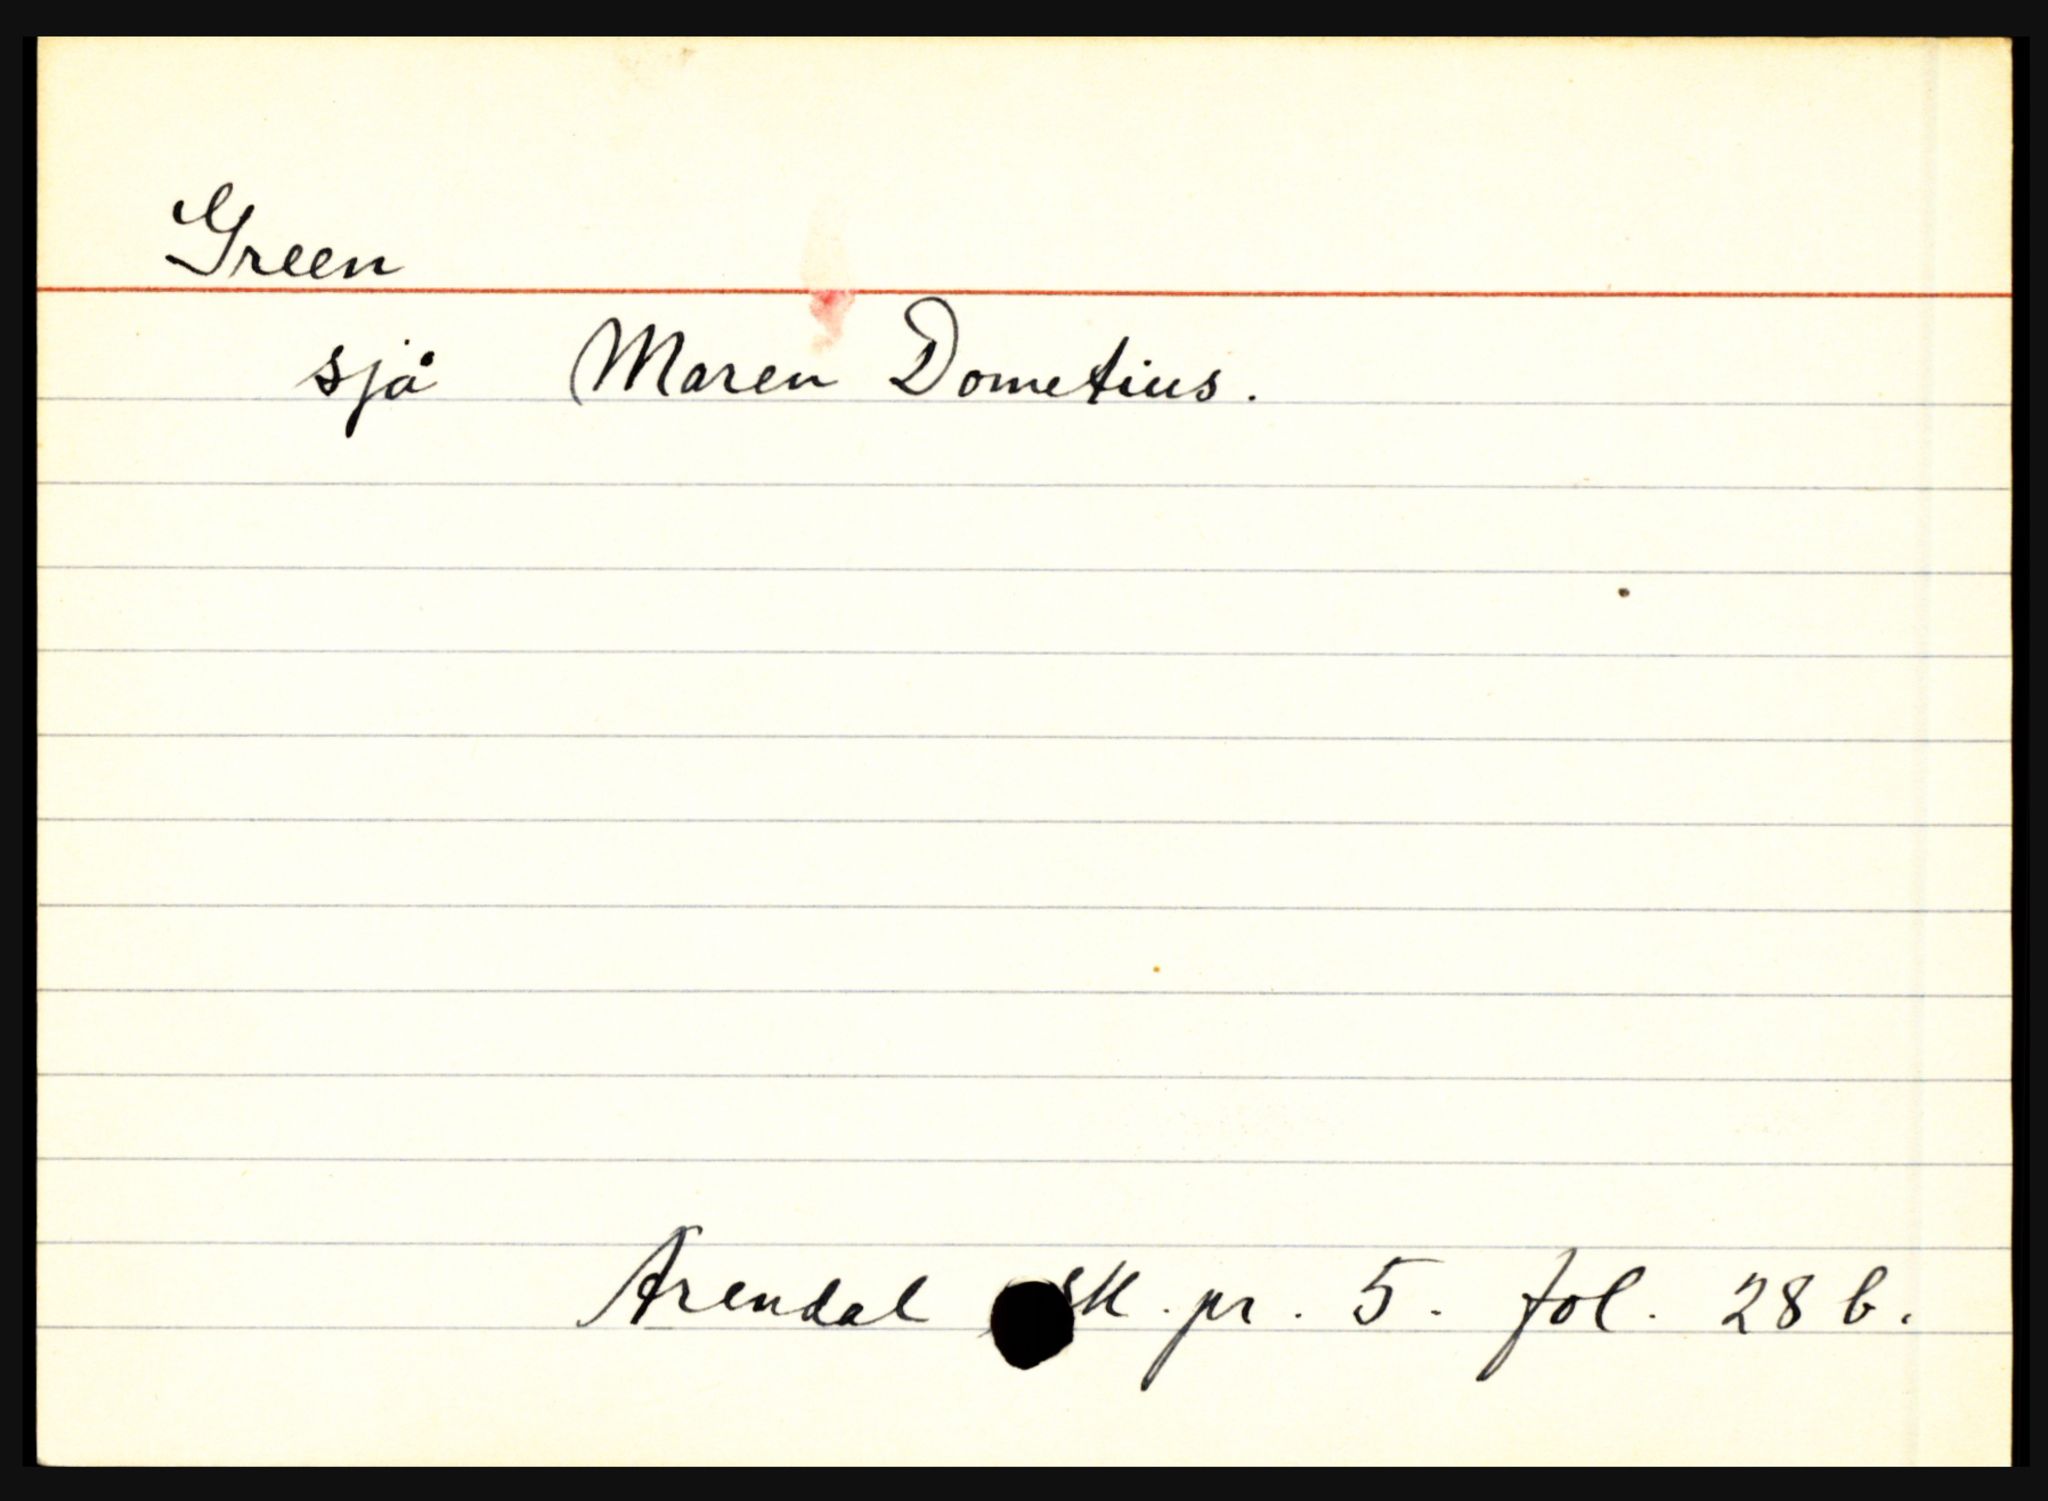 Green
sjå Maren Dometius.
Arendal sk. pr. 5. fol. 28 b.